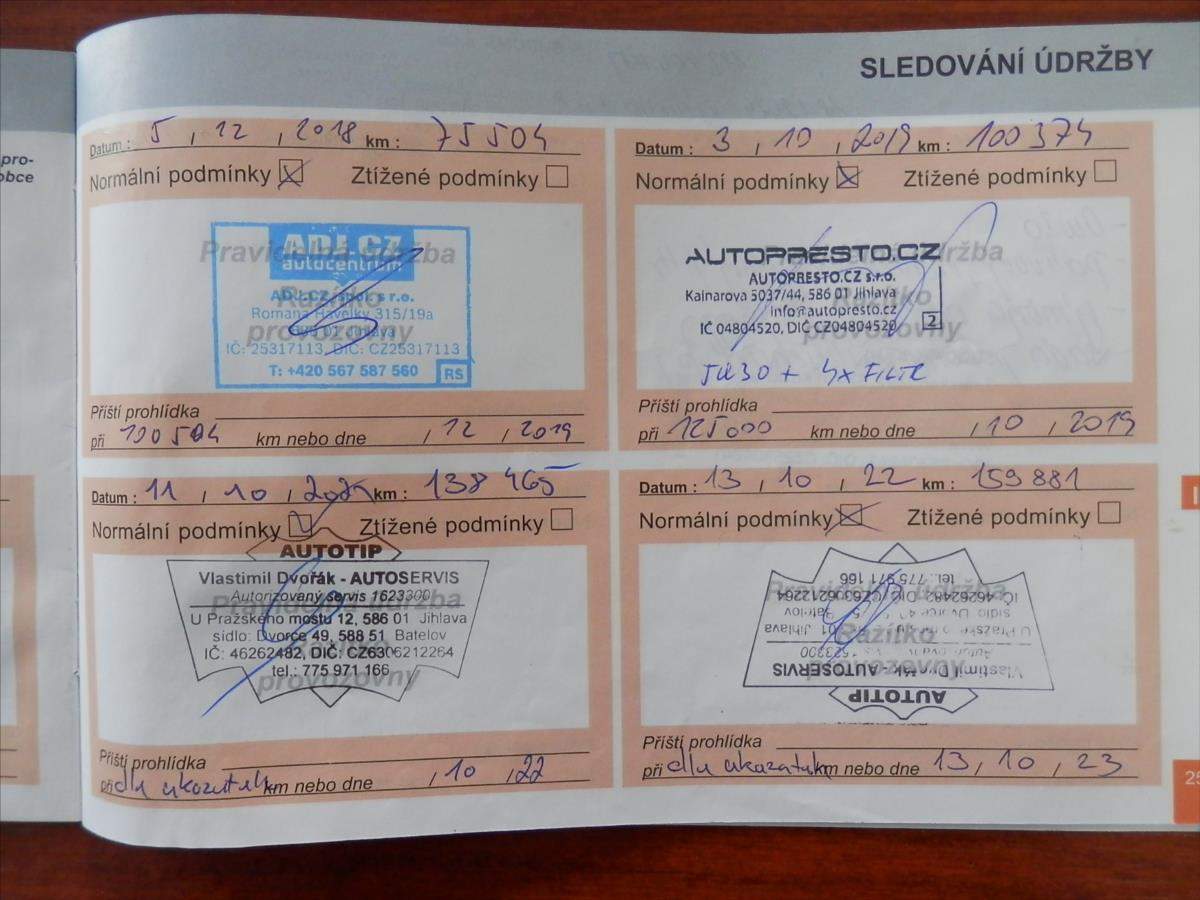 pro-
obce
SLEDOVÁNÍ ÚDRŽBY
Datum : 5 , 12 , 2018 km : 75504
Normální podmínky Ztížené podmínky
Pravidelná údržba
Razítko
provozovny
ADJ.CZ
autocentrum
ADJ.CZ, spol. s r.o.
Romana Havelky 315/19a
586 01 Jihlava
IČ: 25317113, DIČ: CZ25317113
T: +420 567 587 560 RS
Příští prohlídka
při 100504 km nebo dne , 12 , 2019
Datum : 3 , 10 , 2019 km : 100374
Normální podmínky Ztížené podmínky
Pravidelná údržba
Razítko
provozovny
AUTOPRESTO.CZ
AUTOPRESTO.CZ s.r.o.
Kainarova 5037/44, 586 01 Jihlava
info@autopresto.cz
IČ 04804520, DIČ CZ04804520 2
5W30 + 4x FILTR
Příští prohlídka
při 125000 km nebo dne , 10 , 2019
Datum : 11 , 10 , km : 138465
Normální podmínky Ztížené podmínky
Pravidelná údržba
Razítko
provozovny
AUTOTIP
Vlastimil Dvořák - AUTOSERVIS
Autorizovaný servis 1623300
U Pražského mostu 12, 586 01 Jihlava
sídlo: Dvorce 49, 588 51 Batelov
IČ: 46262482, DIČ: CZ6306212264
tel.: 775 971 166
Příští prohlídka
při dle ukazatele km nebo dne , 10 , 22
Datum : 13 , 10 , 22 km : 159881
Normální podmínky Ztížené podmínky
Pravidelná údržba
Razítko
provozovny
AUTOTIP
Vlastimil Dvořák - AUTOSERVIS
U Pražského 01 Jihlava
sídlo: Dvorce 49, Batelov
IČ: 46262482, DIČ: CZ6306212264
tel.: 775 971 166
Příští prohlídka
při dle ukazatele km nebo dne 13 , 10 , 23